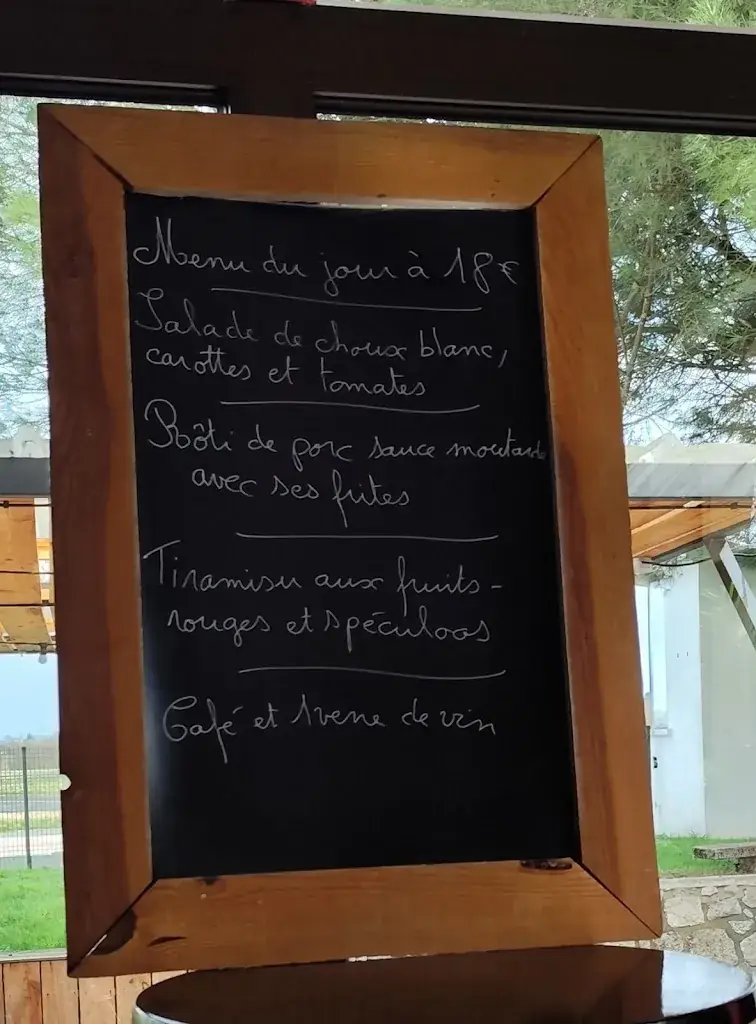 Menu du jour à 18€
Salade de choux blanc,
carottes et tomates
Rôti de porc sauce moutarde
avec ses frites
Tiramisu aux fruits-
rouges et spéculoos
Café et 1 verre de vin